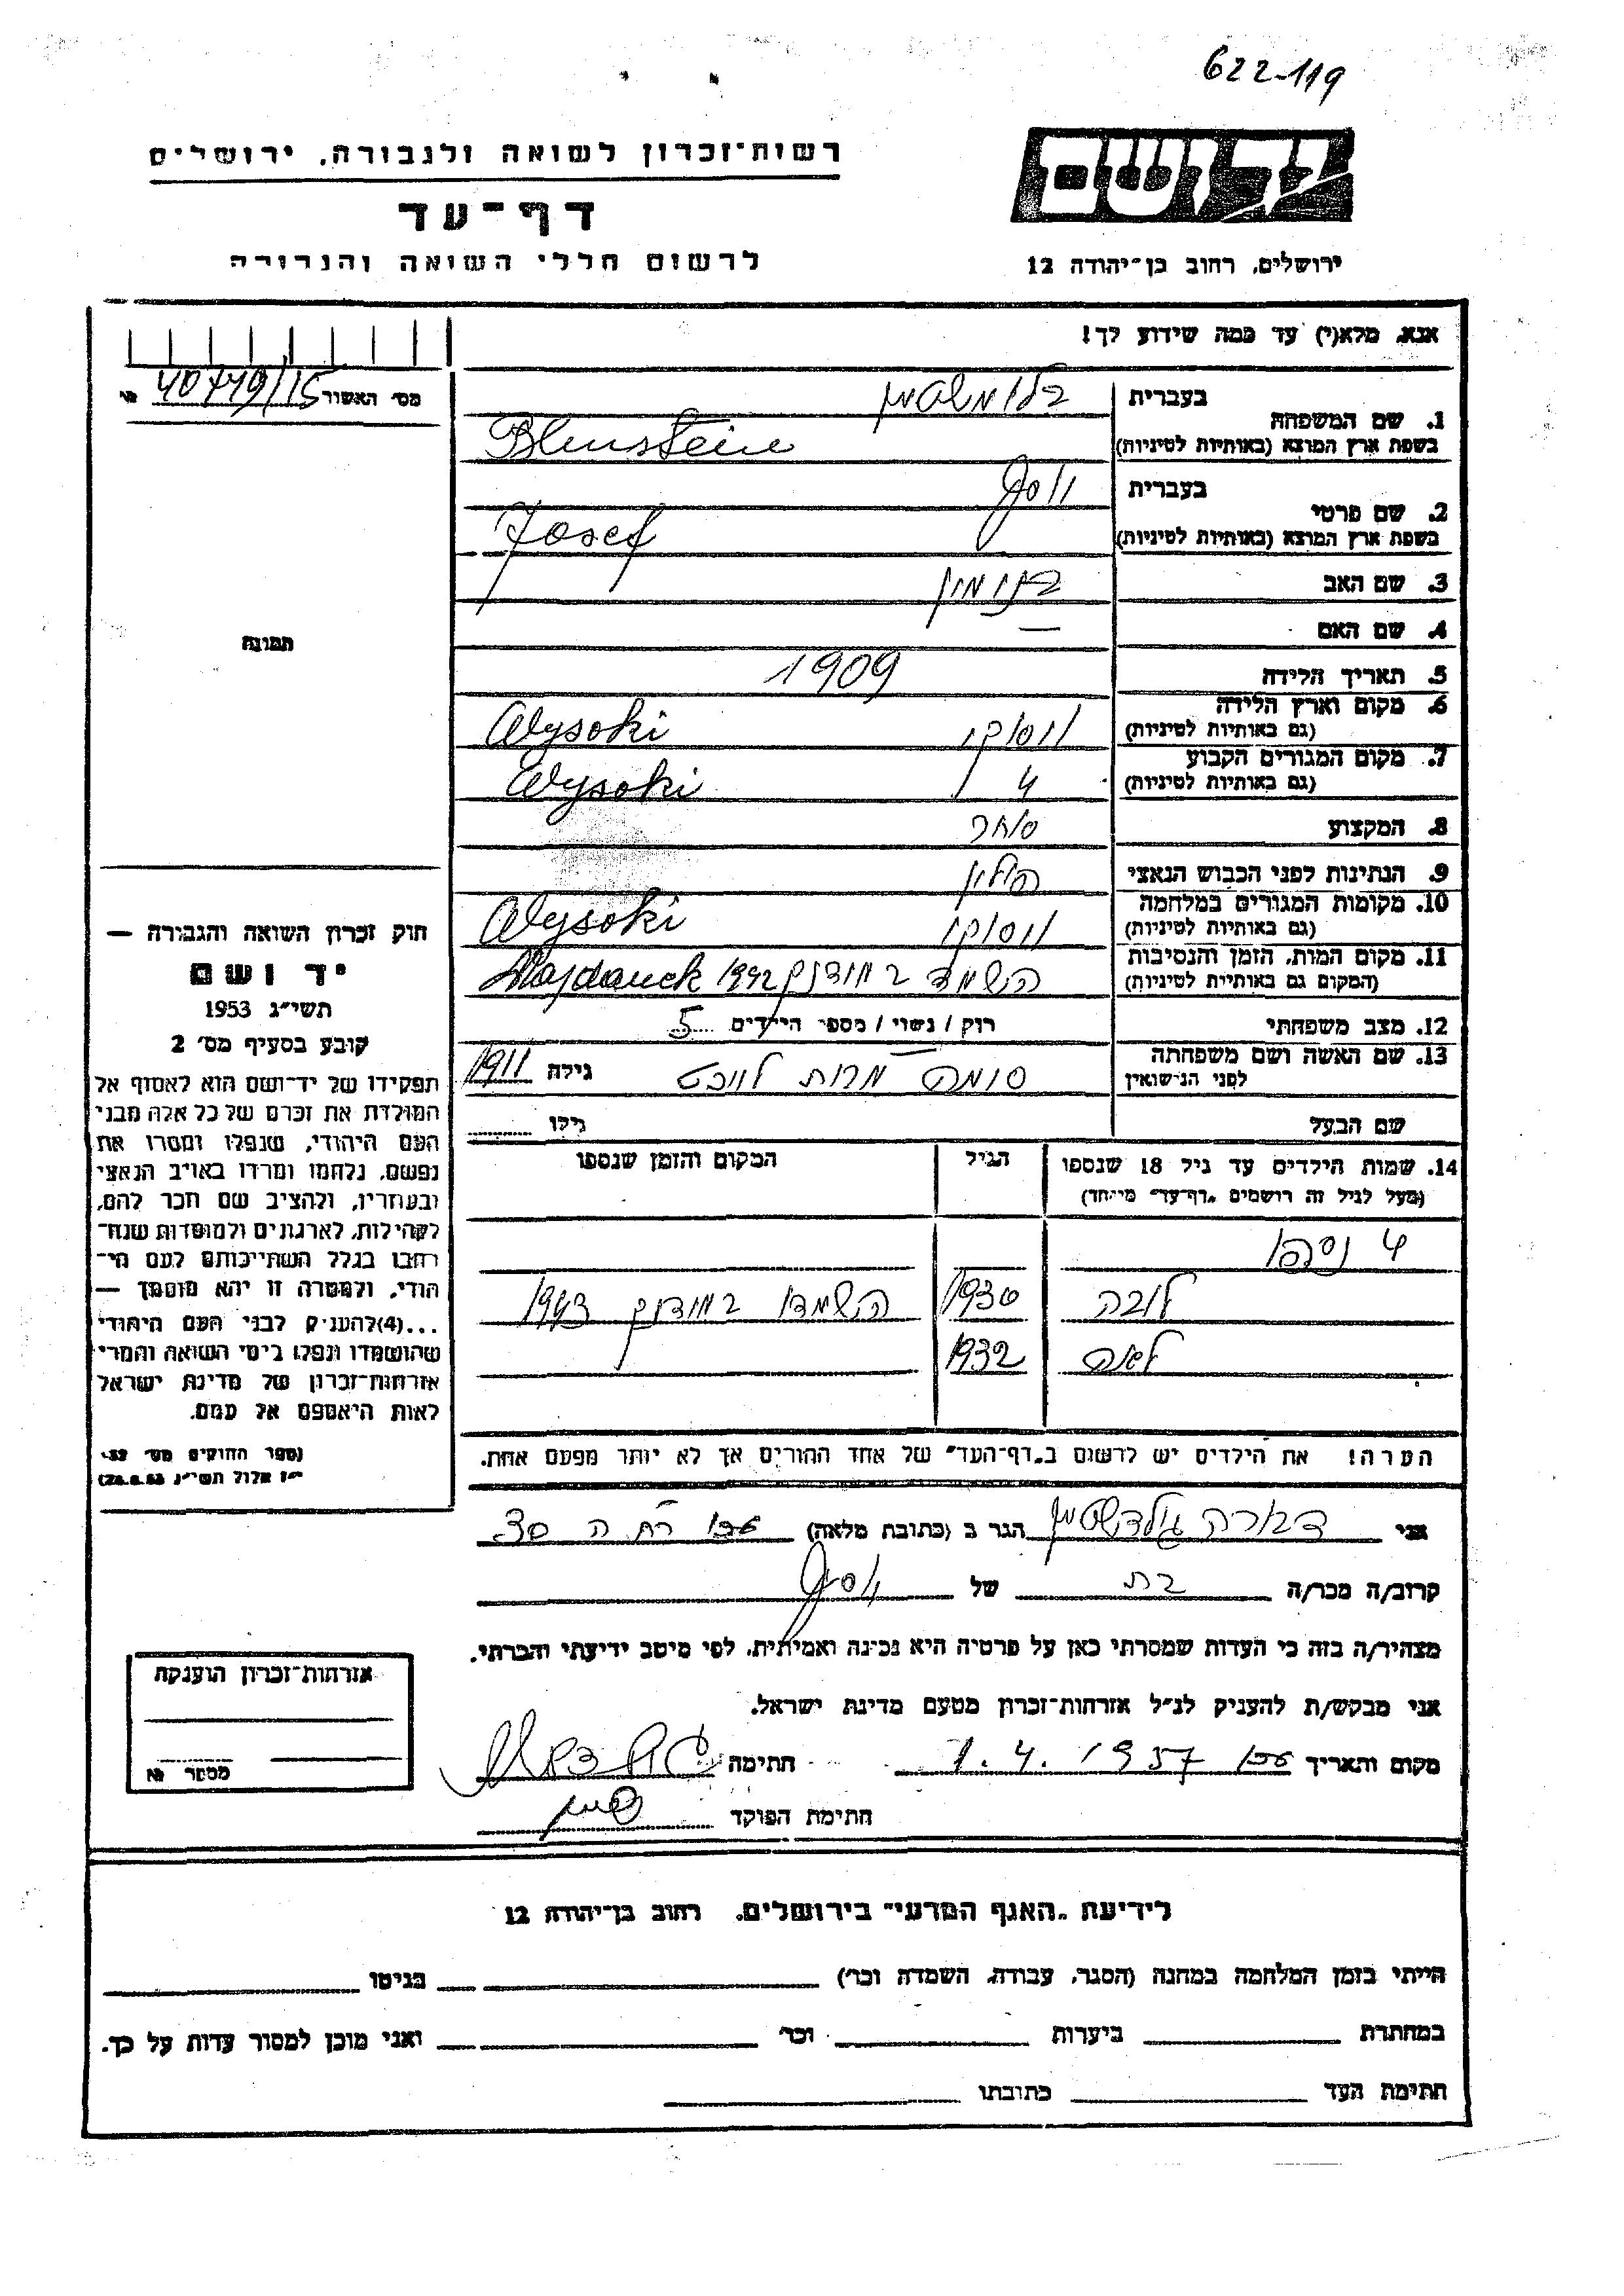 622-119
יד ושם
ירושלים, רחוב בן־יהודה 12
רשות־זכרון לשואה ולגבורה, ירושלים
דף־עד
לרשום חללי השואה והגבורה
אנא, מלא(י) עד כמה שידוע לך!
מס׳ האשור 40779/15 №
1. שם המשפחה בעברית בלומשטיין
בשפת ארץ המוצא (באותיות לטיניות) Blumsteine
2. שם פרטי בעברית יוסף
בשפת ארץ המוצא (באותיות לטיניות) Josef
3. שם האב בנימין
4. שם האם —
5. תאריך הלידה 1909
6. מקום וארץ הלידה
(גם באותיות לטיניות) ויסוקי Wysoki
7. מקום המגורים הקבוע
(גם באותיות לטיניות) Wysoki
8. המקצוע סוחר
9. הנתינות לפני הכבוש הנאצי פולין
10. מקומות המגורים במלחמה
(גם באותיות לטיניות) ויסוקי Wysoki
11. מקום המות, הזמן והנסיבות
(המקום גם באותיות לטיניות) הושמד במידנק 1942 Majdanek
12. מצב משפחתי רוק / נשוי / מספר הילדים 5
13. שם האשה ושם משפחתה
לפני הנישואין גילה 1911
שם הבעל גילו
14. שמות הילדים עד גיל 18 שנספו הגיל המקום והזמן שנספו
(מעל לגיל זה רושמים „דף־עד״ מיוחד)
4 נספו
לובה 1930 השמדו במידנק 1943
לאה 1932
הערה! את הילדים יש לרשום ב„דף־העד״ של אחד ההורים אך לא יותר מפעם אחת.
תמונה
חוק זכרון השואה והגבורה —
יד ושם
תשי״ג 1953
קובע בסעיף מס׳ 2
תפקידו של יד־ושם הוא לאסוף אל
המולדת את זכרם של כל אלה מבני
העם היהודי, שנפלו ומסרו את
נפשם, נלחמו ומרדו באויב הנאצי
ובעוזריו, ולהציב שם וזכר להם,
לקהילות, לארגונים ולמוסדות שנח־
רבו בגלל השתייכותם לעם הי־
הודי, ולמטרה זו יהא מוסמך —
...(4) להעניק לבני העם היהודי
שהושמדו ונפלו בימי השואה והמרי
אזרחות־זכרון של מדינת ישראל
לאות היאספם אל עמם.
(ספר החוקים מס׳ 132,
י״ז אלול תשי״ג 28.8.53)
אני דבורה גולדשטיין הגר ב (כתובת מלאה)
קרוב/ה מכר/ה בת של יוסף
מצהיר/ה בזה כי העדות שמסרתי כאן על פרטיה היא נכונה ואמיתית, לפי מיטב ידיעתי והכרתי.
אני מבקש/ת להעניק לנ״ל אזרחות־זכרון מטעם מדינת ישראל.
מקום ותאריך 1.4.1957 חתימה
חתימת הפוקד
אזרחות־זכרון הוענקה
מספר №
לידיעת „האגף המדעי״ בירושלים, רחוב בן־יהודה 12
הייתי בזמן המלחמה במחנה (הסגר, עבודה, השמדה וכו׳) בגיטו
במחתרת ביערות וכו׳ ואני מוכן למסור עדות על כך.
חתימת העד כתובתו